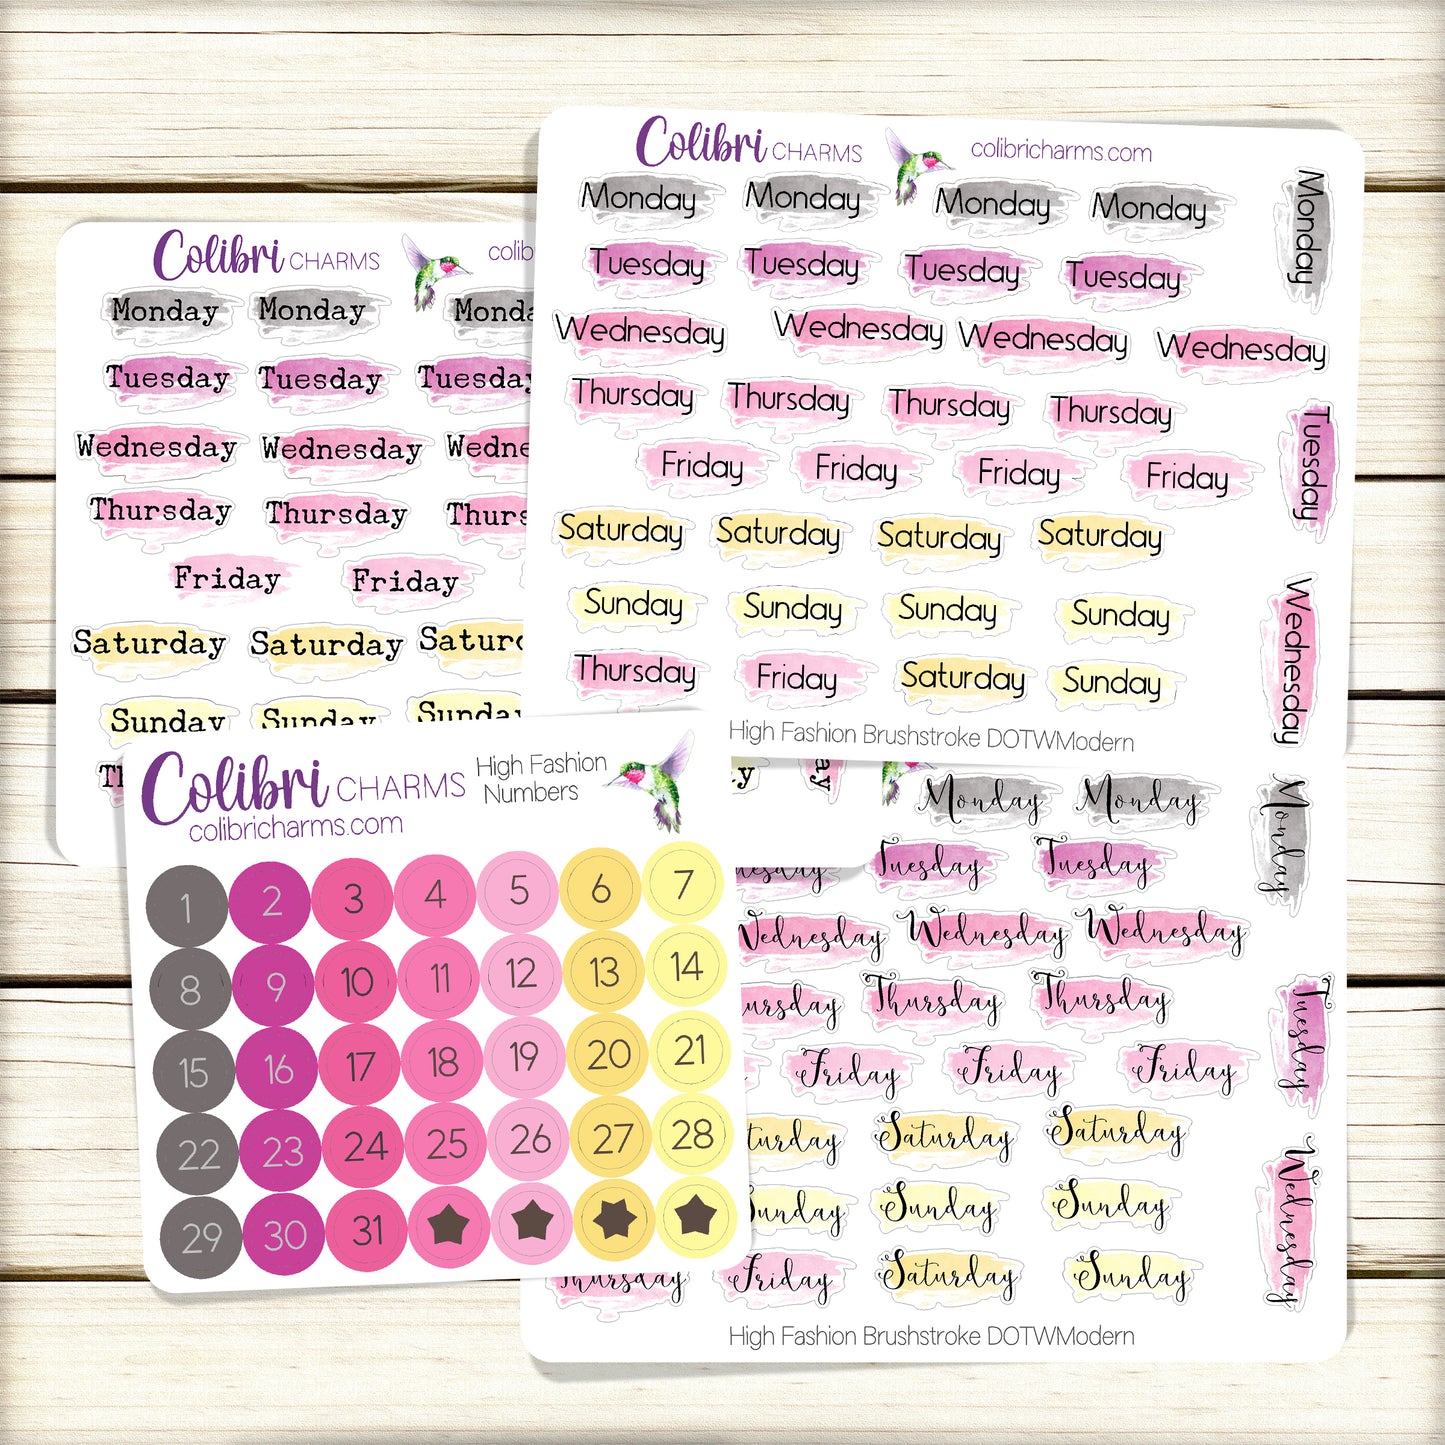 Colibri CHARMS
colibricharms.com
Monday Monday Monday Monday Monday
Tuesday Tuesday Tuesday Tuesday
Wednesday Wednesday Wednesday Wednesday
Thursday Thursday Thursday Thursday Tuesday
Friday Friday Friday Friday
Saturday Saturday Saturday Saturday
Sunday Sunday Sunday Sunday Wednesday
Thursday Friday Saturday Sunday
High Fashion Brushstroke DOTWModern
Colibri CHARMS
Monday Monday
Tuesday Tuesday Tuesday
Wednesday Wednesday
Thursday Thursday
Friday Friday
Saturday Saturday
Sunday Sunday Sunday
Colibri CHARMS
High Fashion
Numbers
colibricharms.com
1 2 3 4 5 6 7
8 9 10 11 12 13 14
15 16 17 18 19 20 21
22 23 24 25 26 27 28
29 30 31
Monday Monday Monday
Tuesday Tuesday
Wednesday Wednesday Wednesday
Thursday Thursday Tuesday
Friday Friday Friday
Saturday Saturday
Sunday Sunday Sunday Wednesday
Thursday Friday Saturday Sunday
High Fashion Brushstroke DOTWModern